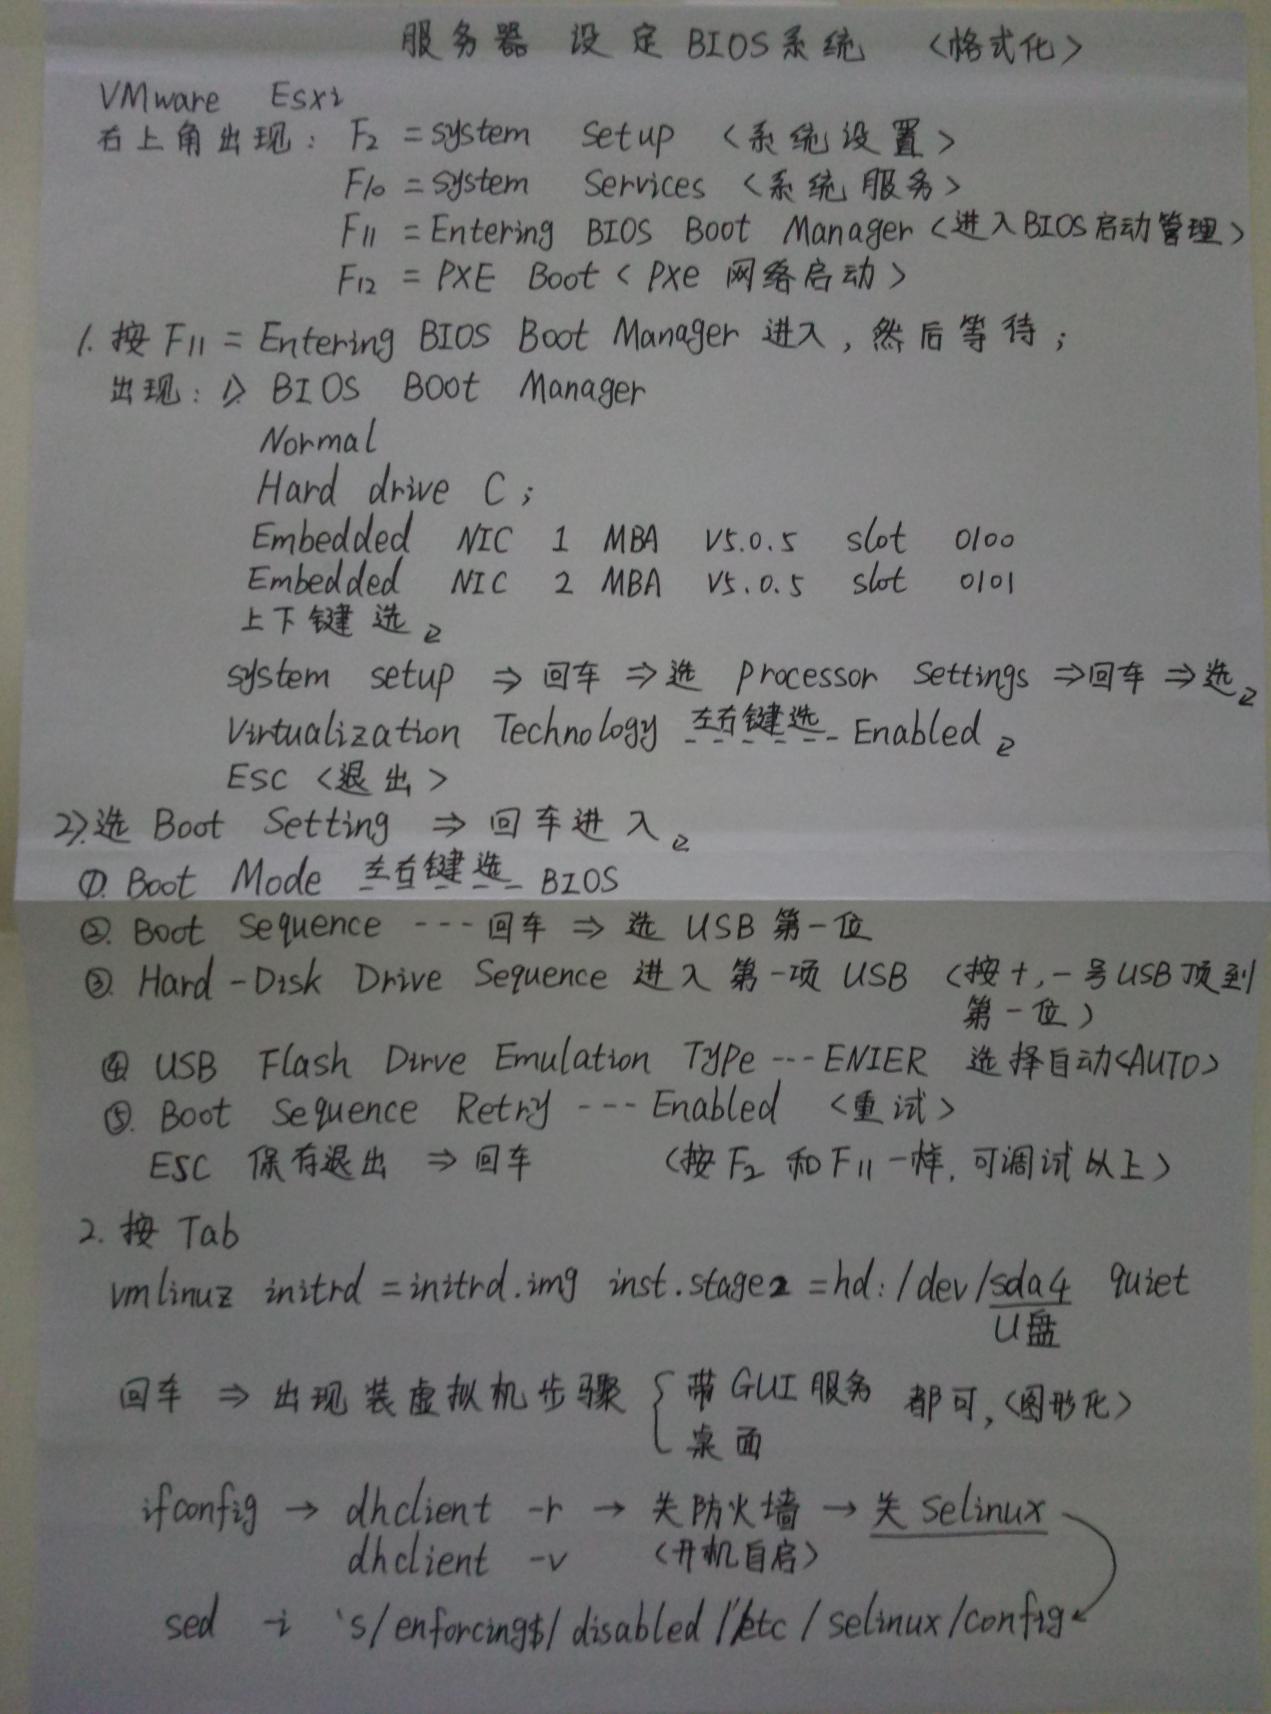 服务器 设定BIOS系统 <格式化>
VMware Esxi
右上角出现: F2 = system Setup <系统设置>
F10 = system Services <系统服务>
F11 = Entering BIOS Boot Manager <进入BIOS启动管理>
F12 = PXE Boot < PXe 网络启动>
1. 按F11 = Entering BIOS Boot Manager 进入, 然后等待;
出现: 1> BIOS BOOt Manager
Normal
Hard drive C;
Embedded NIC 1 MBA V5.0.5 slot 0100
Embedded NIC 2 MBA V5.0.5 slot 0101
上下键选
system setup ⇒ 回车 ⇒ 选 Processor Settings ⇒ 回车 ⇒ 选
Virtualization Technology 左右键选 Enabled
ESC <退出>
2>.选 Boot Setting ⇒ 回车进入
①. Boot Mode 左右键选 BIOS
②. Boot Sequence --- 回车 ⇒ 选 USB 第一位
③. Hard-Disk Drive Sequence 进入第一项 USB (按+,-号USB顶到
第一位)
④. USB Flash Dirve Emulation TYPe --- ENIER 选择自动<AUTO>
⑤. Boot Sequence Retry --- Enabled <重试>
ESC 保存退出 ⇒ 回车 (按F2和F11一样, 可调试以上)
2. 按 Tab
vmlinuz initrd =initrd.img inst.stage2 =hd:/dev/sda4 quiet
U盘
回车 ⇒ 出现装虚拟机步骤 { 带GUI服务 都可, <图形化>
桌面
ifconfig → dhclient -r → 关防火墙 → 关 Selinux
dhclient -v <开机自启>
sed -i 's/enforcing$/disabled/'/etc/selinux/config